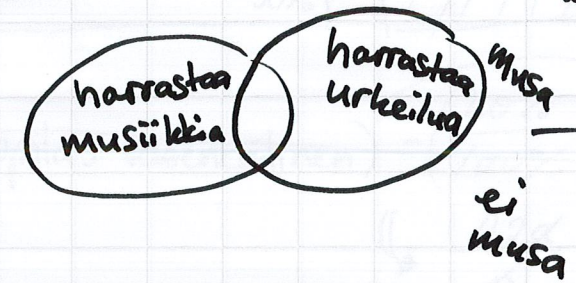 harrastaa
musiikkia
harrastaa
urheilua
musa
ei
musa